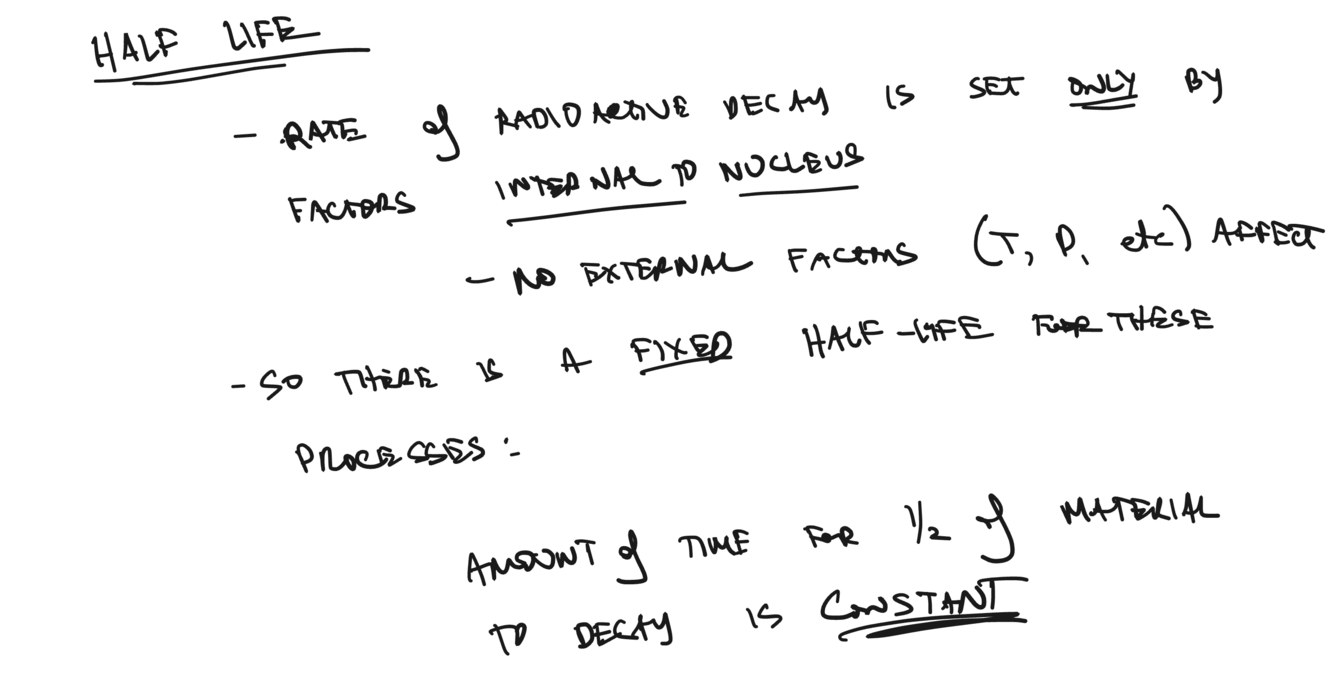 HALF LIFE
- RATE of RADIOACTIVE DECAY IS SET ONLY BY
FACTORS INTERNAL TO NUCLEUS
- NO EXTERNAL FACTORS (T, P, etc) AFFECT
- SO THERE IS A FIXED HALF-LIFE FOR THESE
PROCESSES:
AMOUNT of TIME FOR 1/2 of MATERIAL
TO DECAY IS CONSTANT